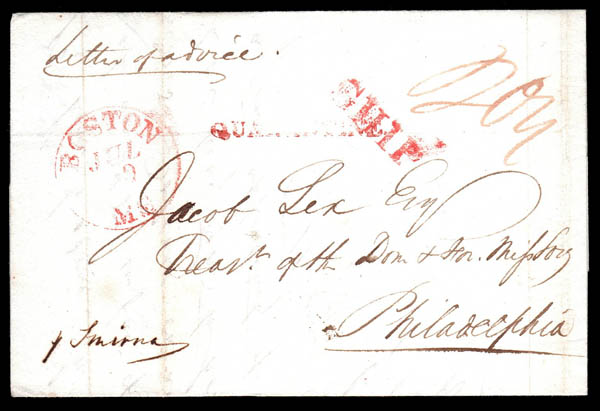 Letter of advice.
SHIP
BOSTON
JUL
MS
Jacob Lex Esq
Treasr. of the Dom & For. Miss Socy
Philadelphia
p Smirna